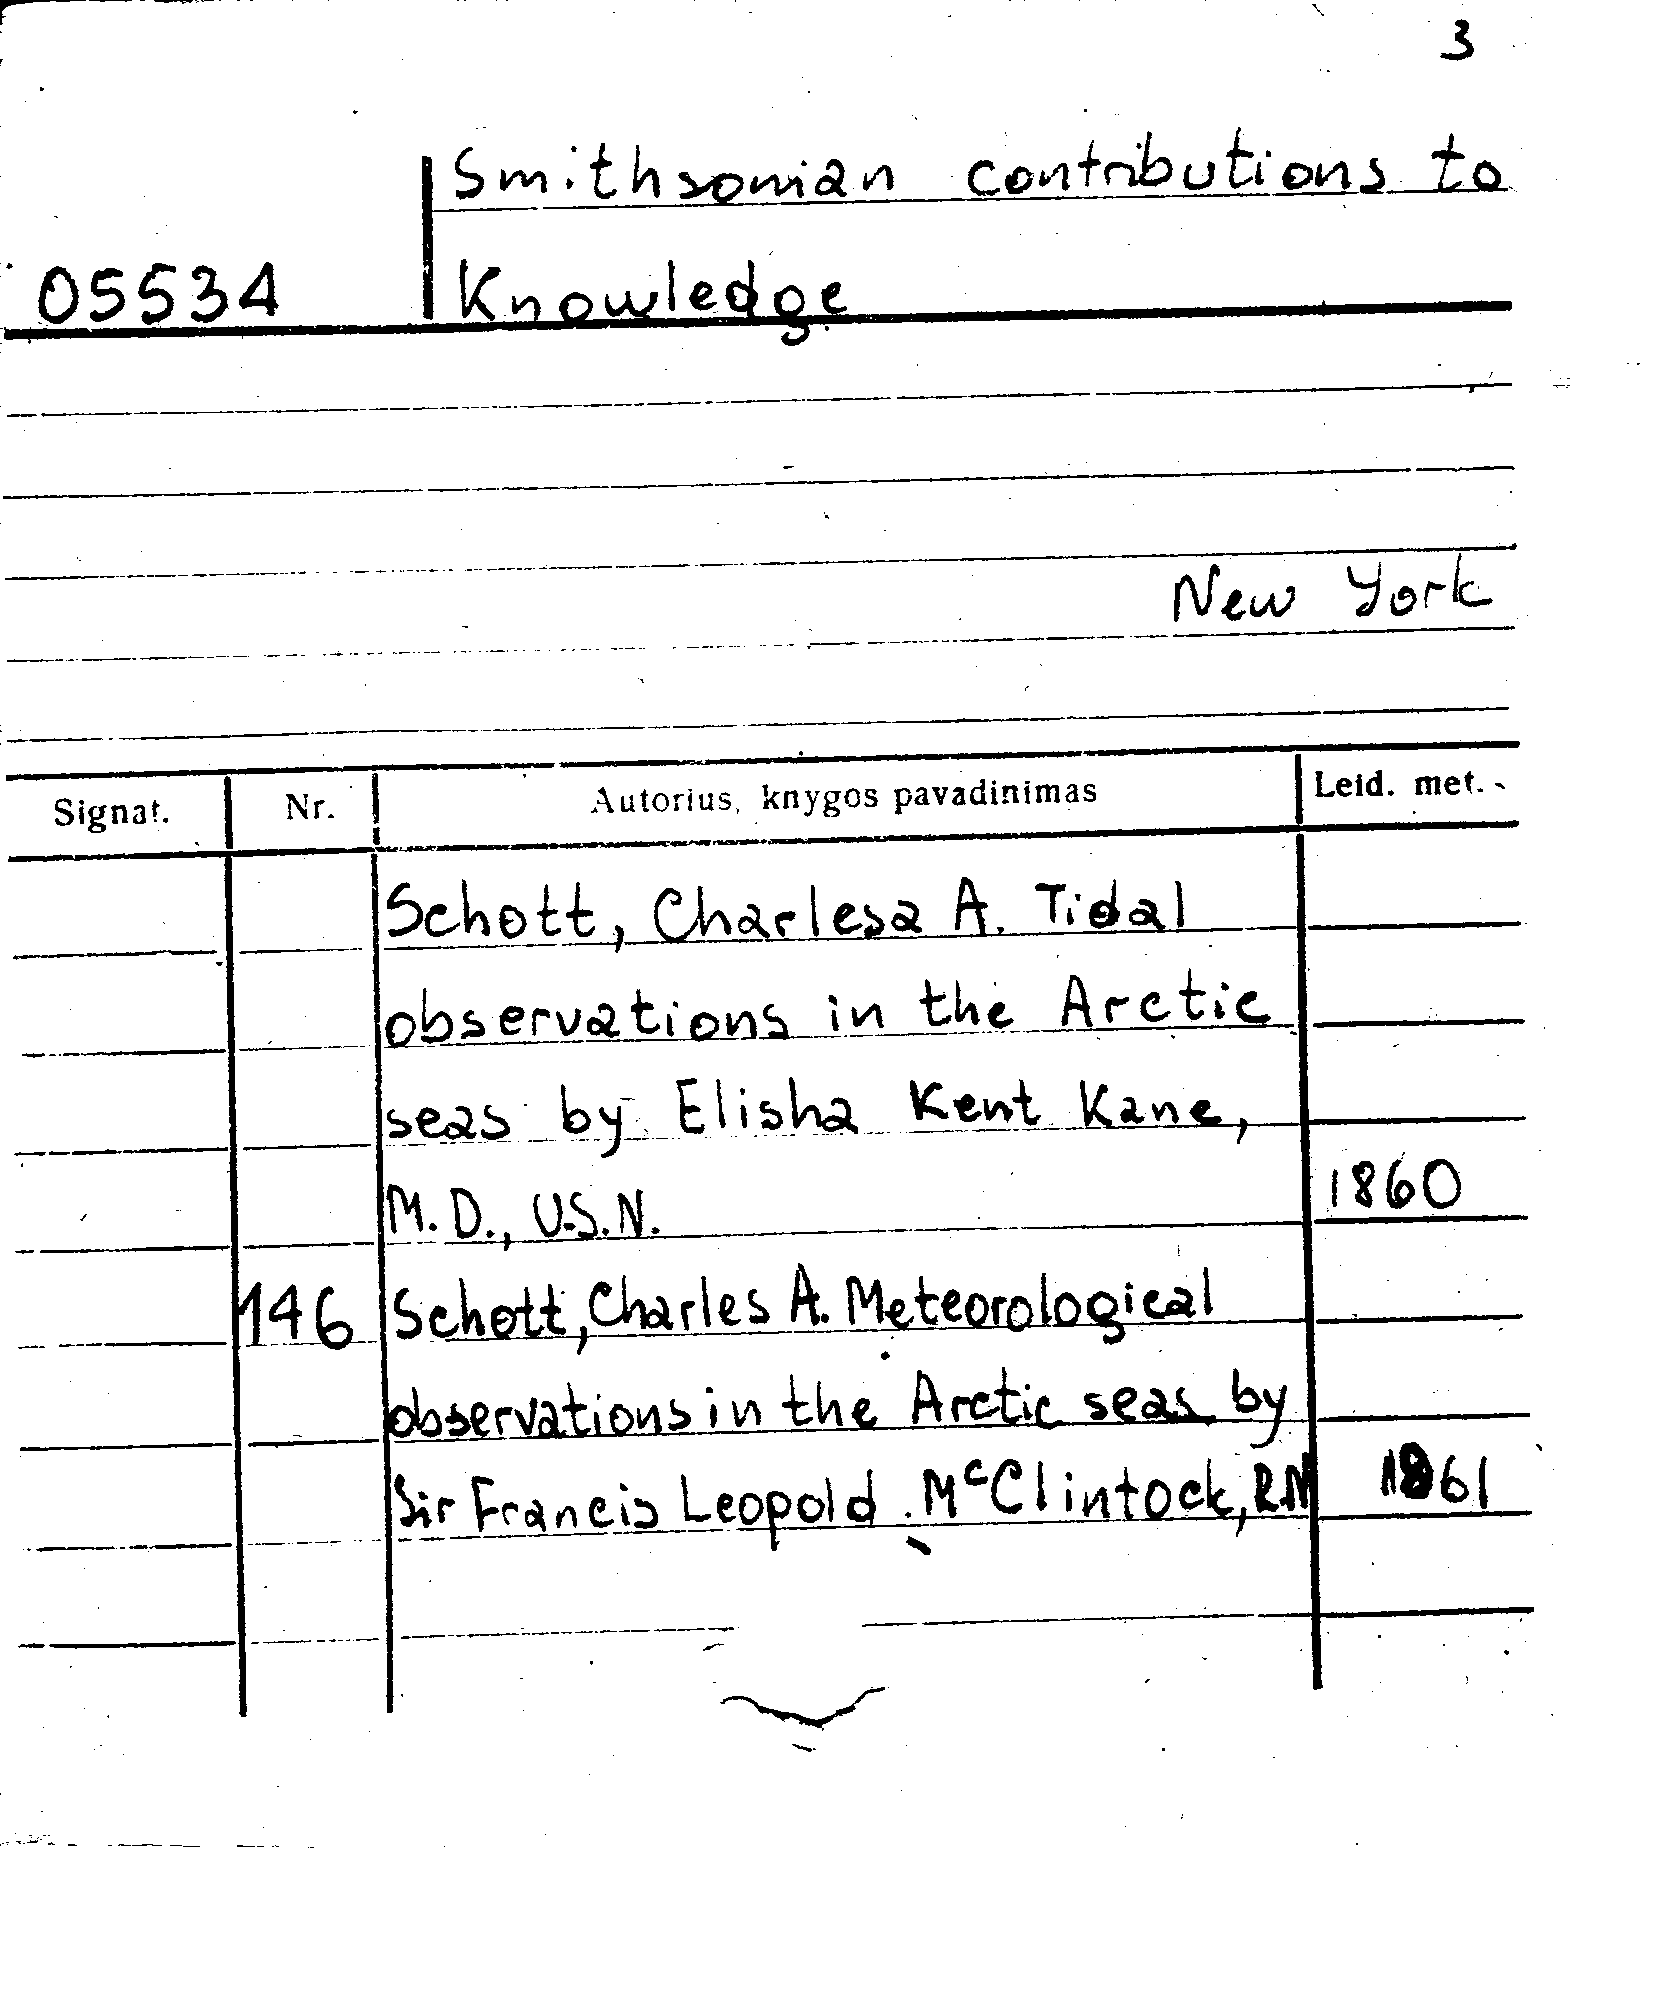 3
Smithsonian contributions to
05534 Knowledge
New York
Signat. Nr. Autorius, knygos pavadinimas Leid. met.
Schott, Charlesa A. Tidal
observations in the Arctic
seas by Elisha Kent Kane,
M.D., U.S.N. 1860
146 Schott, Charles A. Meteorological
observations in the Arctic seas by
Sir Francis Leopold McClintock, R.N 1861